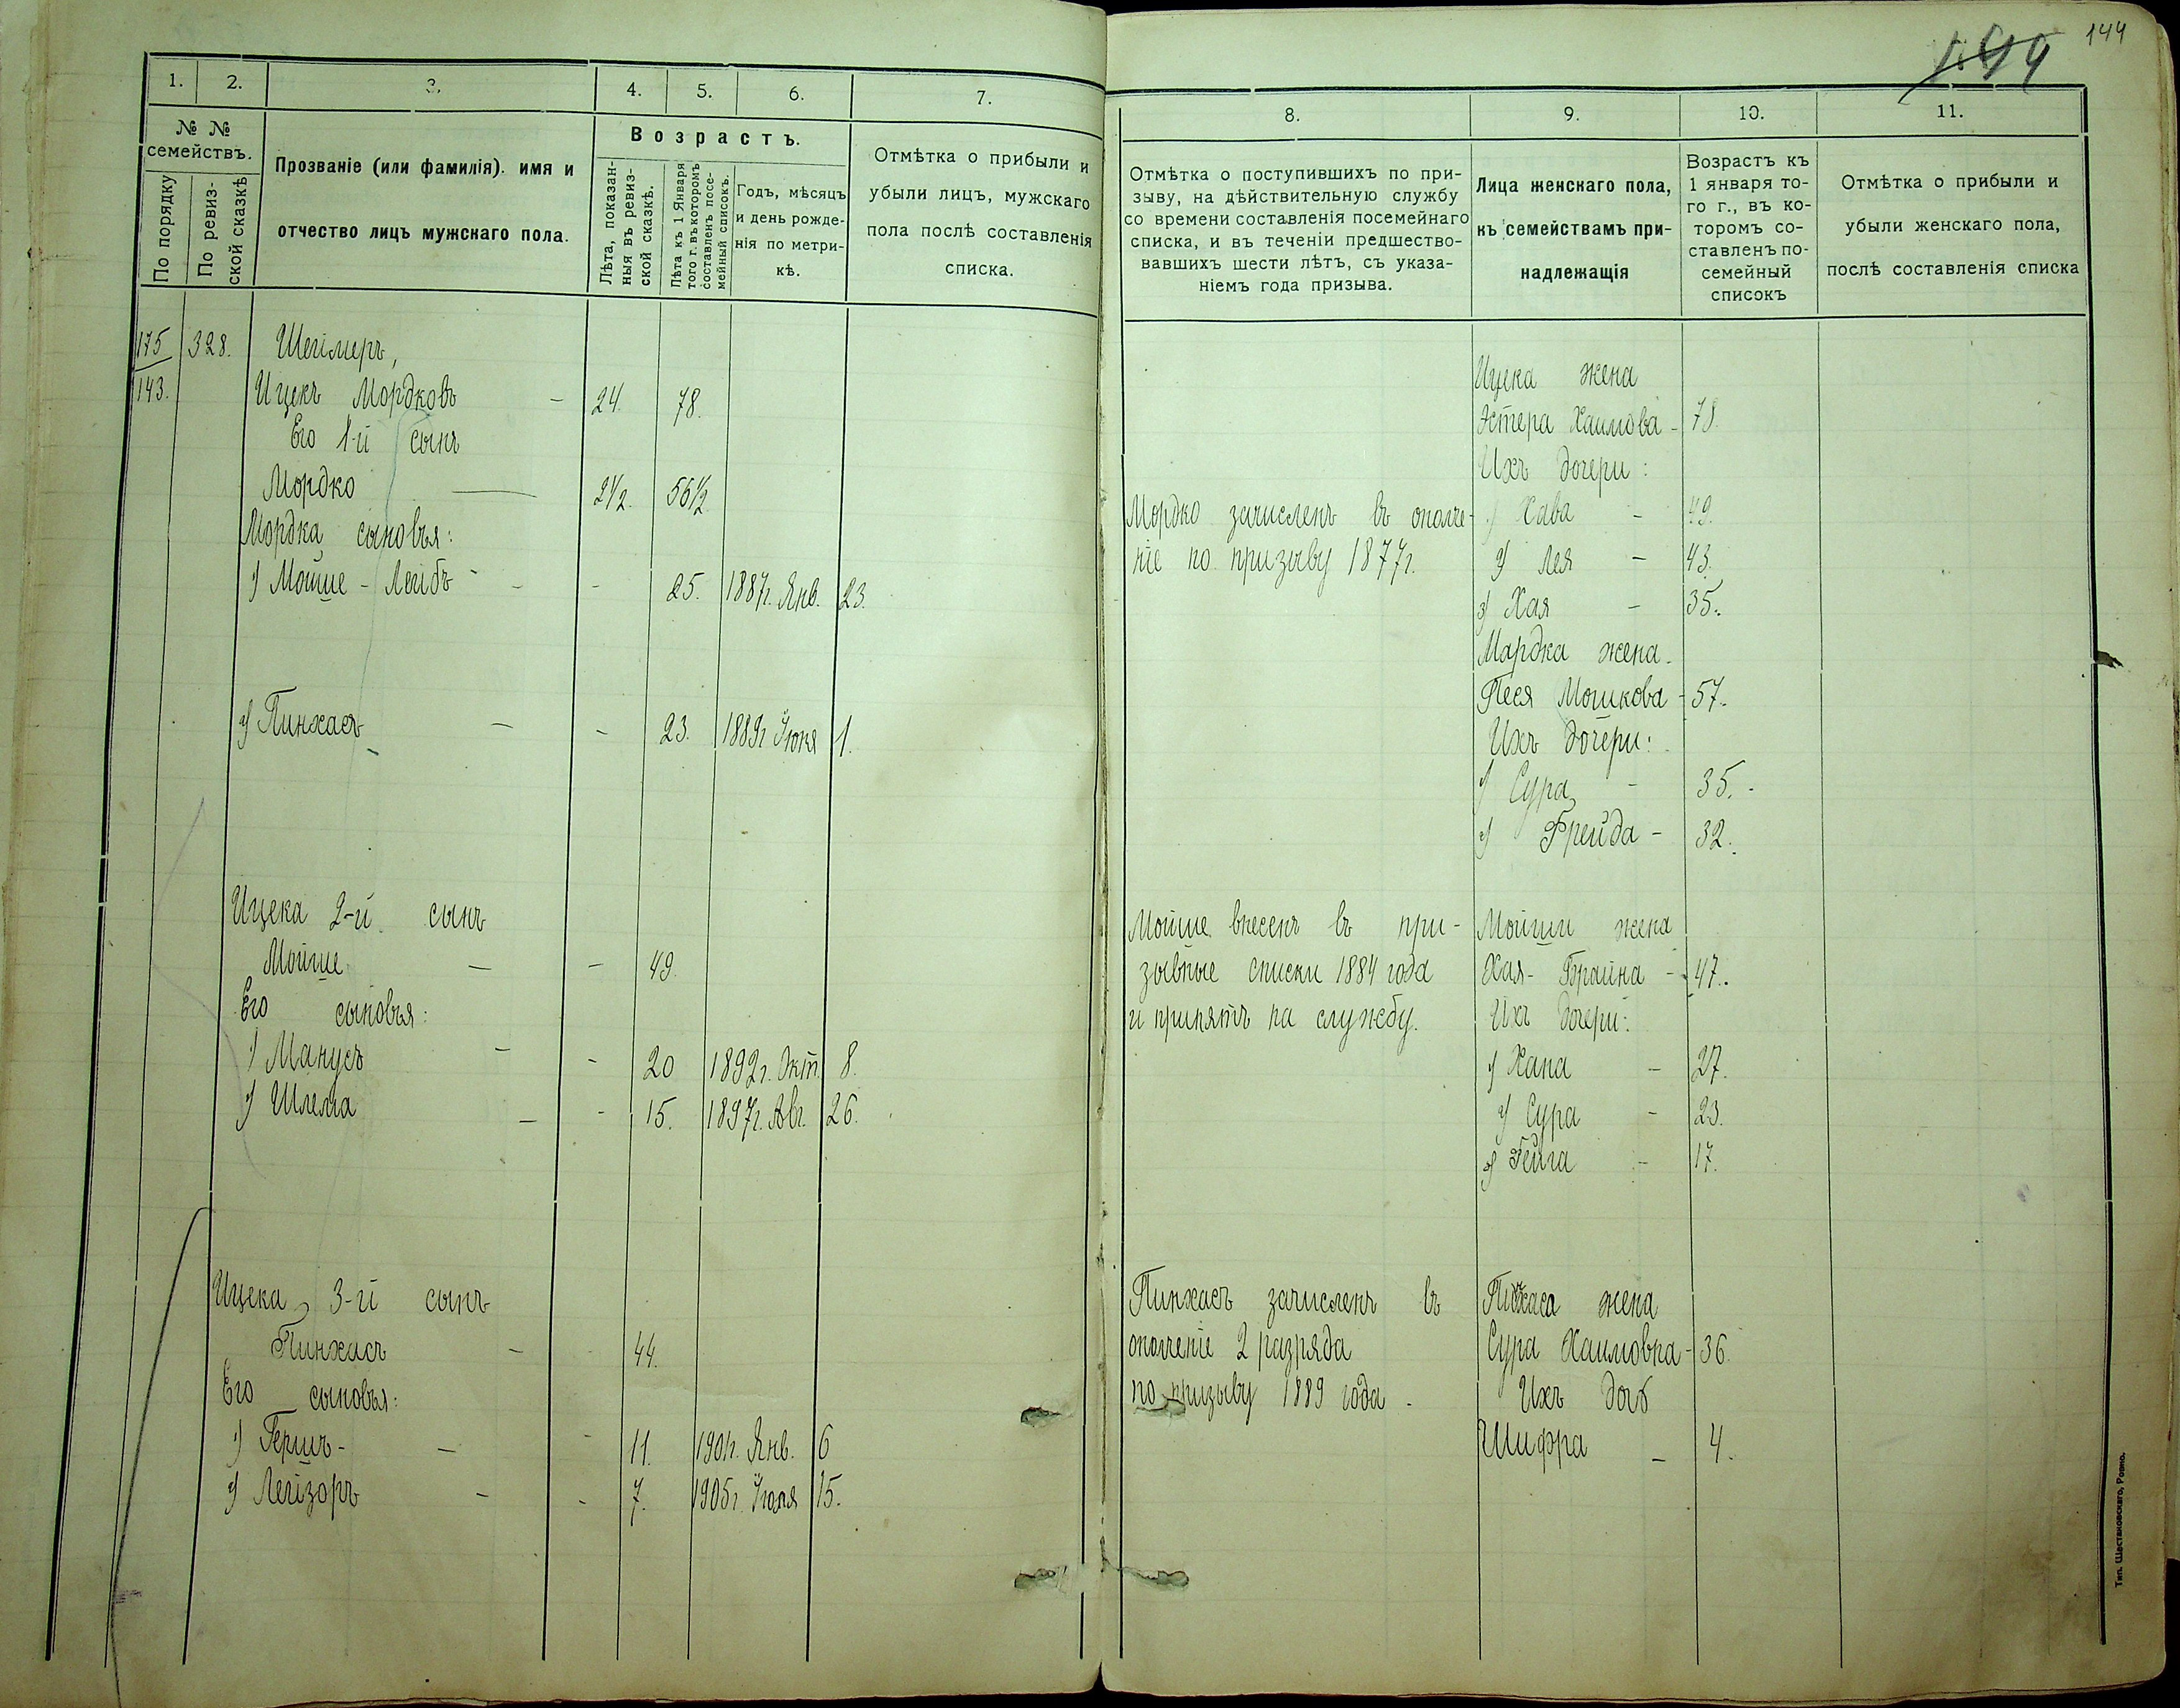 144
144
1. 2. 3. 4. 5. 6. 7.
№ №
семействъ.
По порядку
По ревиз-
ской сказкѣ
Прозваніе (или фамилія). имя и
отчество лицъ мужскаго пола.
Возрастъ.
Лѣта, показан-
ныя въ ревиз-
ской сказкѣ.
Лѣта къ 1 Января
того г. въ которомъ
составленъ посе-
мейный списокъ.
Годъ, мѣсяцъ
и день рожде-
нія по метри-
кѣ.
Отмѣтка о прибыли и
убыли лицъ, мужскаго
пола послѣ составленія
списка.
175 328. Шеймеръ,
143. Ицекъ Мордковъ - 24. 78.
Его 1-й сынъ
Мордко 2 1/2. 56 1/2
Мордка сыновья:
1) Мойше - Лейбъ - - 25. 1887г. Янв. 23.
2) Пинхасъ - - 23. 1889г Іюня 1.
Ицека 2-й сынъ
Мойше - - 49.
Его сыновья:
1) Манусъ - - 20 1892г. Окт. 8.
2) Шлема - - 15. 1897г. Авг. 26.
Ицека 3-й сынъ
Пинхасъ - 44.
Его сыновья:
1) Гершъ - - 11. 1901г. Янв. 6
2) Лейзоръ - - 7. 1905г. Іюля 15.
8. 9. 10. 11.
Отмѣтка о поступившихъ по при-
зыву, на дѣйствительную службу
со времени составленія посемейнаго
списка, и въ теченіи предшество-
вавшихъ шести лѣтъ, съ указа-
ніемъ года призыва.
Лица женскаго пола,
къ семействамъ при-
надлежащія
Возрастъ къ
1 января то-
го г., въ ко-
торомъ со-
ставленъ по-
семейный
списокъ
Отмѣтка о прибыли и
убыли женскаго пола,
послѣ составленія списка
Ицека жена
Эстера Хаимова - 78.
Ихъ дочери:
Мордко зачисленъ въ ополче- 1) Хава - 49.
ніе по призыву 1877г. 2) Лея - 43.
3) Хая - 35.
Мардка жена.
Песя Мошкова - 57.
Ихъ дочери:
1) Сура - 35.
2) Фрейда - 32.
Мойше внесенъ въ при- Мойши жена
зывные списки 1884 года Хая-Брайна - 47.
и принятъ на службу. Ихъ дочери:
1) Хана - 27.
2) Сура - 23.
3) Гейга - 17.
Пинхасъ зачисленъ въ Пинхаса жена
ополченіе 2 разряда Сура Хаимовна - 36.
по призыву 1889 года. Ихъ дочь
Шифра - 4.
Тип. Шестаковскаго, Ровно.